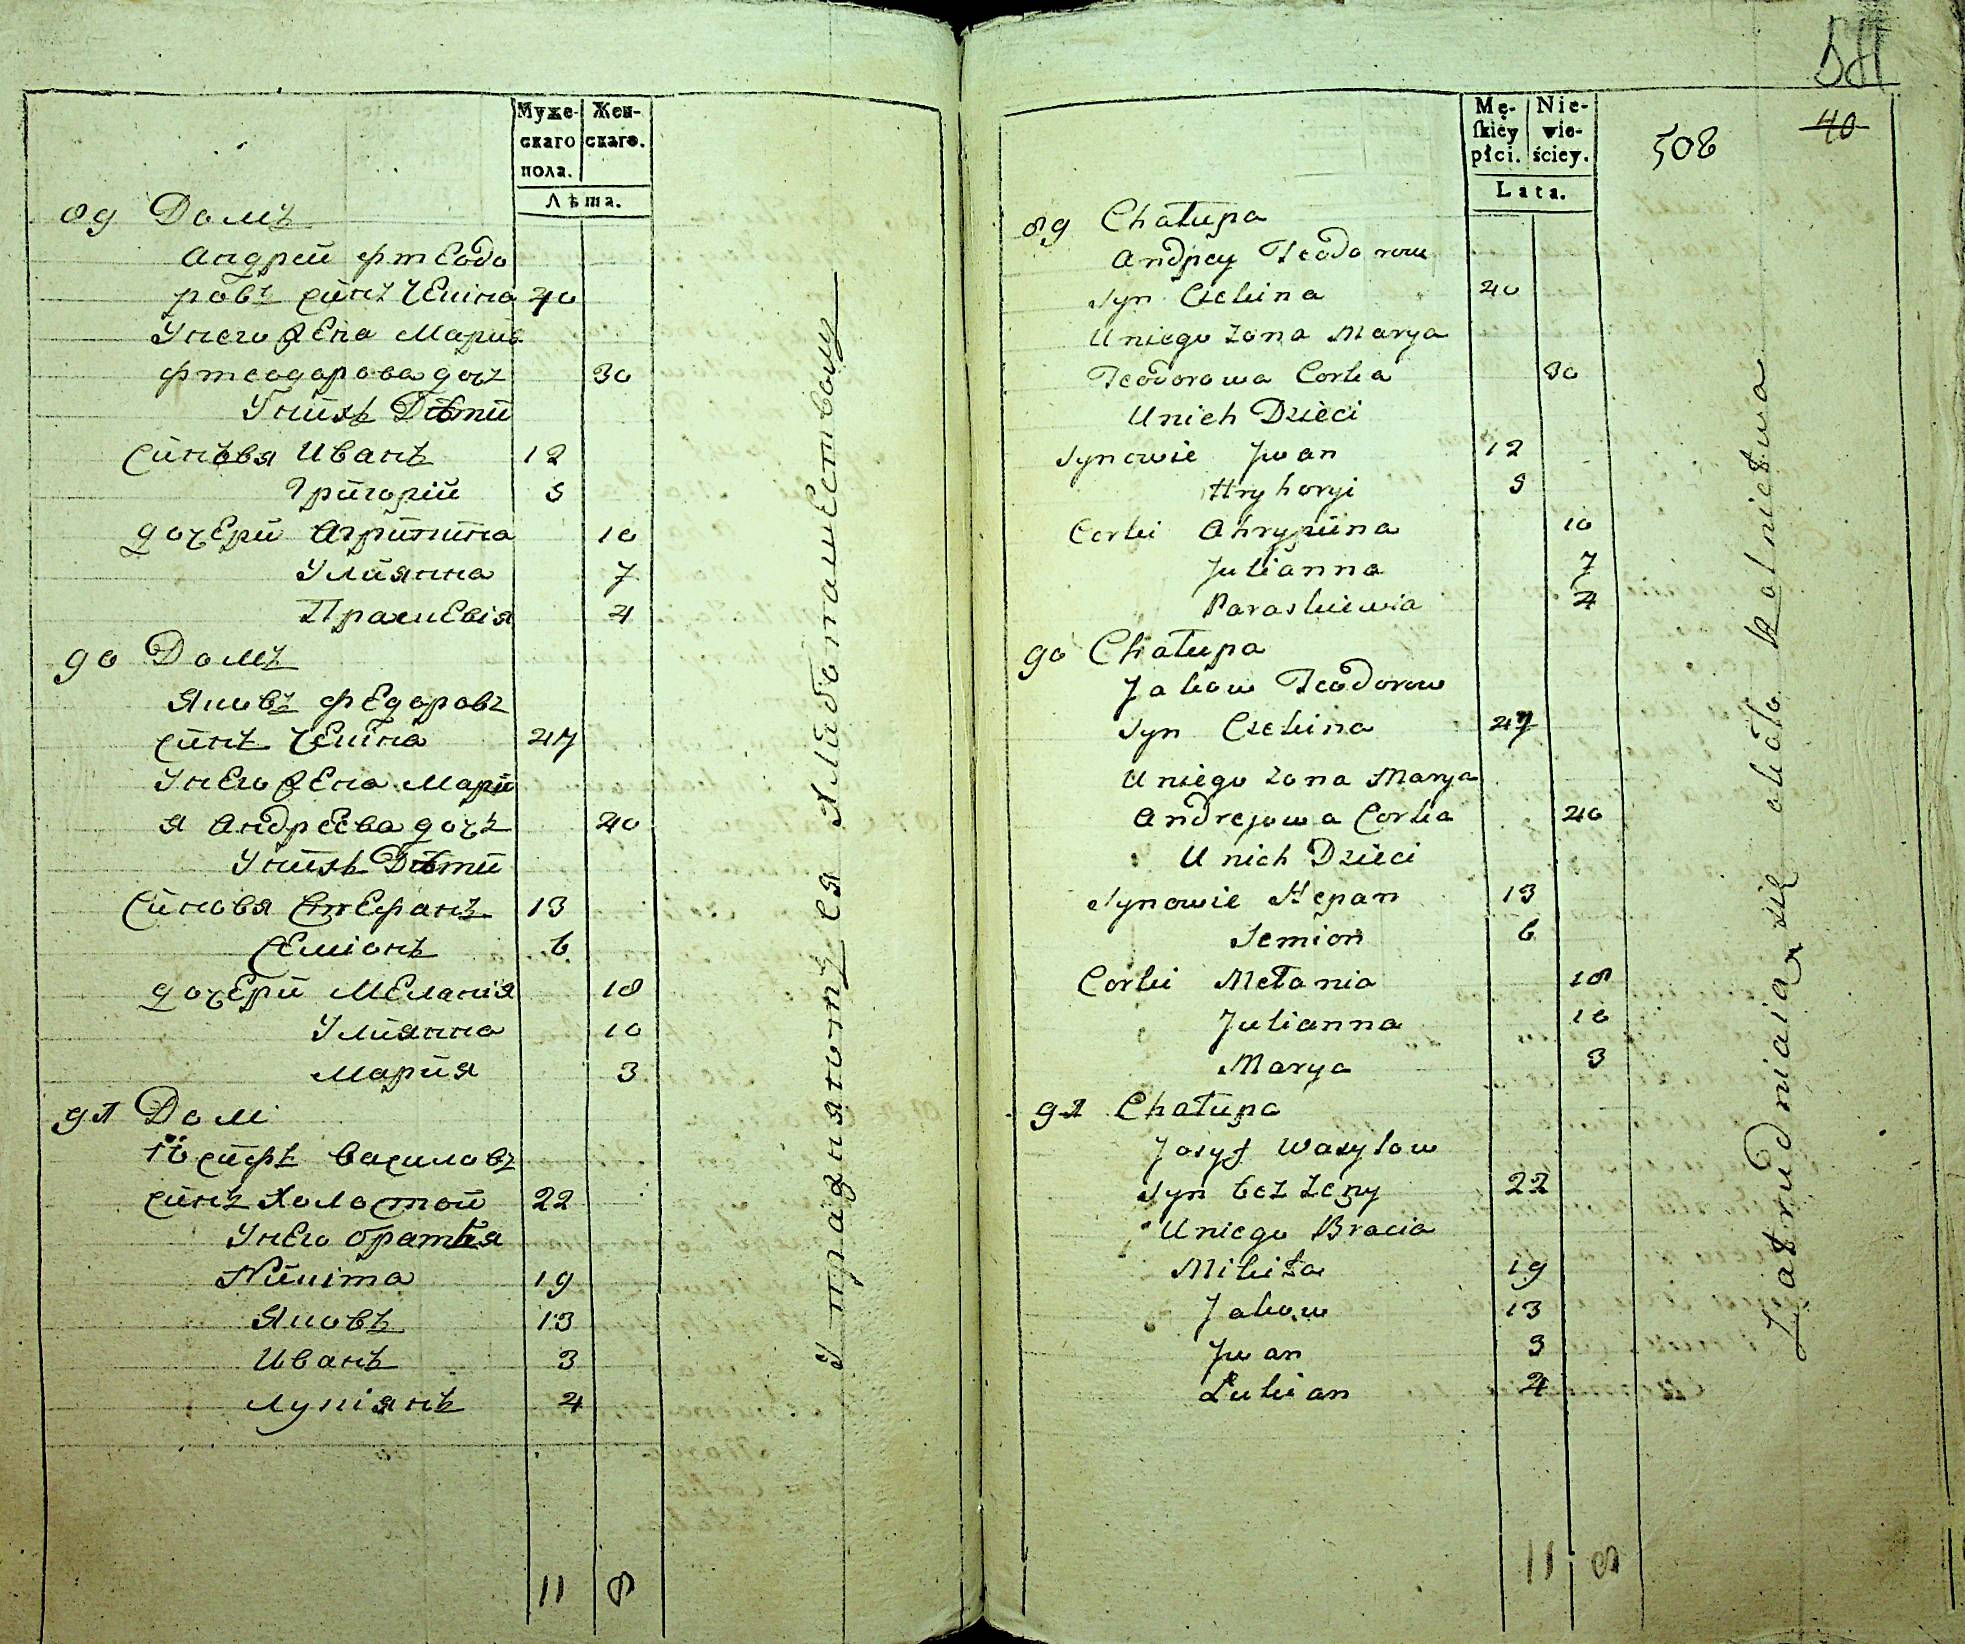 Муже-
скаго
пола.
Жен-
скаго.
Лѣта.
89 Домъ
Андрей Фтеодо
ровъ синъ Чекина 40
Унего жена Мария
Фтеодорова дочъ 30
Унихъ Дѣти
Синовья Иванъ 12
Григорій 5
дочери Агрипина 10
Улиянна 7
Праскевія 4
90 Домъ
Яковъ Федоровъ
синъ Чекина 47
Унего жена Мари
я Андреева дочъ 40
Унихъ Дѣти
Синовя Стефанъ 13
Семіонъ 6
дочери Меланія 18
Улиянна 10
Мария 3
91 Домъ
Іосифъ Василовъ
синъ Холостой 22
Унего братья
Никита 19
Яковъ 13
Иванъ 3
Лукіянъ 4
11 8
Упражняютъся хлиботашеством
54
40
508
Mę-
skiey
płci.
Nie-
wie-
ściey.
Lata.
89 Chałupa
Andrey Teodorow
Syn Czekina 40
Uniego Zona Marya
Teodorowa Corka 30
Unich Dzieci
Synowie Jwan 12
Hryhoryi 5
Corki Ahrypiina 10
Julianna 7
Paraskiewia 4
90 Chałupa
Jakow Teodorow
Syn Czekina 47
Uniego Zona Marya
Andrejowa Corka 40
Unich Dzieci
Synowie Stepan 13
Semion 6
Corki Mełania 18
Julianna 10
Marya 3
91 Chałupa
Josyf Wasylow
Syn bez Zeny 22
Uniego Bracia
Mikita 19
Jakow 13
Jwan 3
Łukian 4
11 8
Zatrudniaią się około Rolnictwa